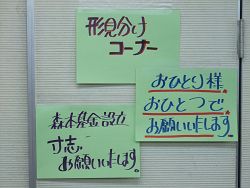 形見分け
コーナー
おひとり様
おひとつで
お願いいたします。
森本基金設立
寸志
お願いいたします。